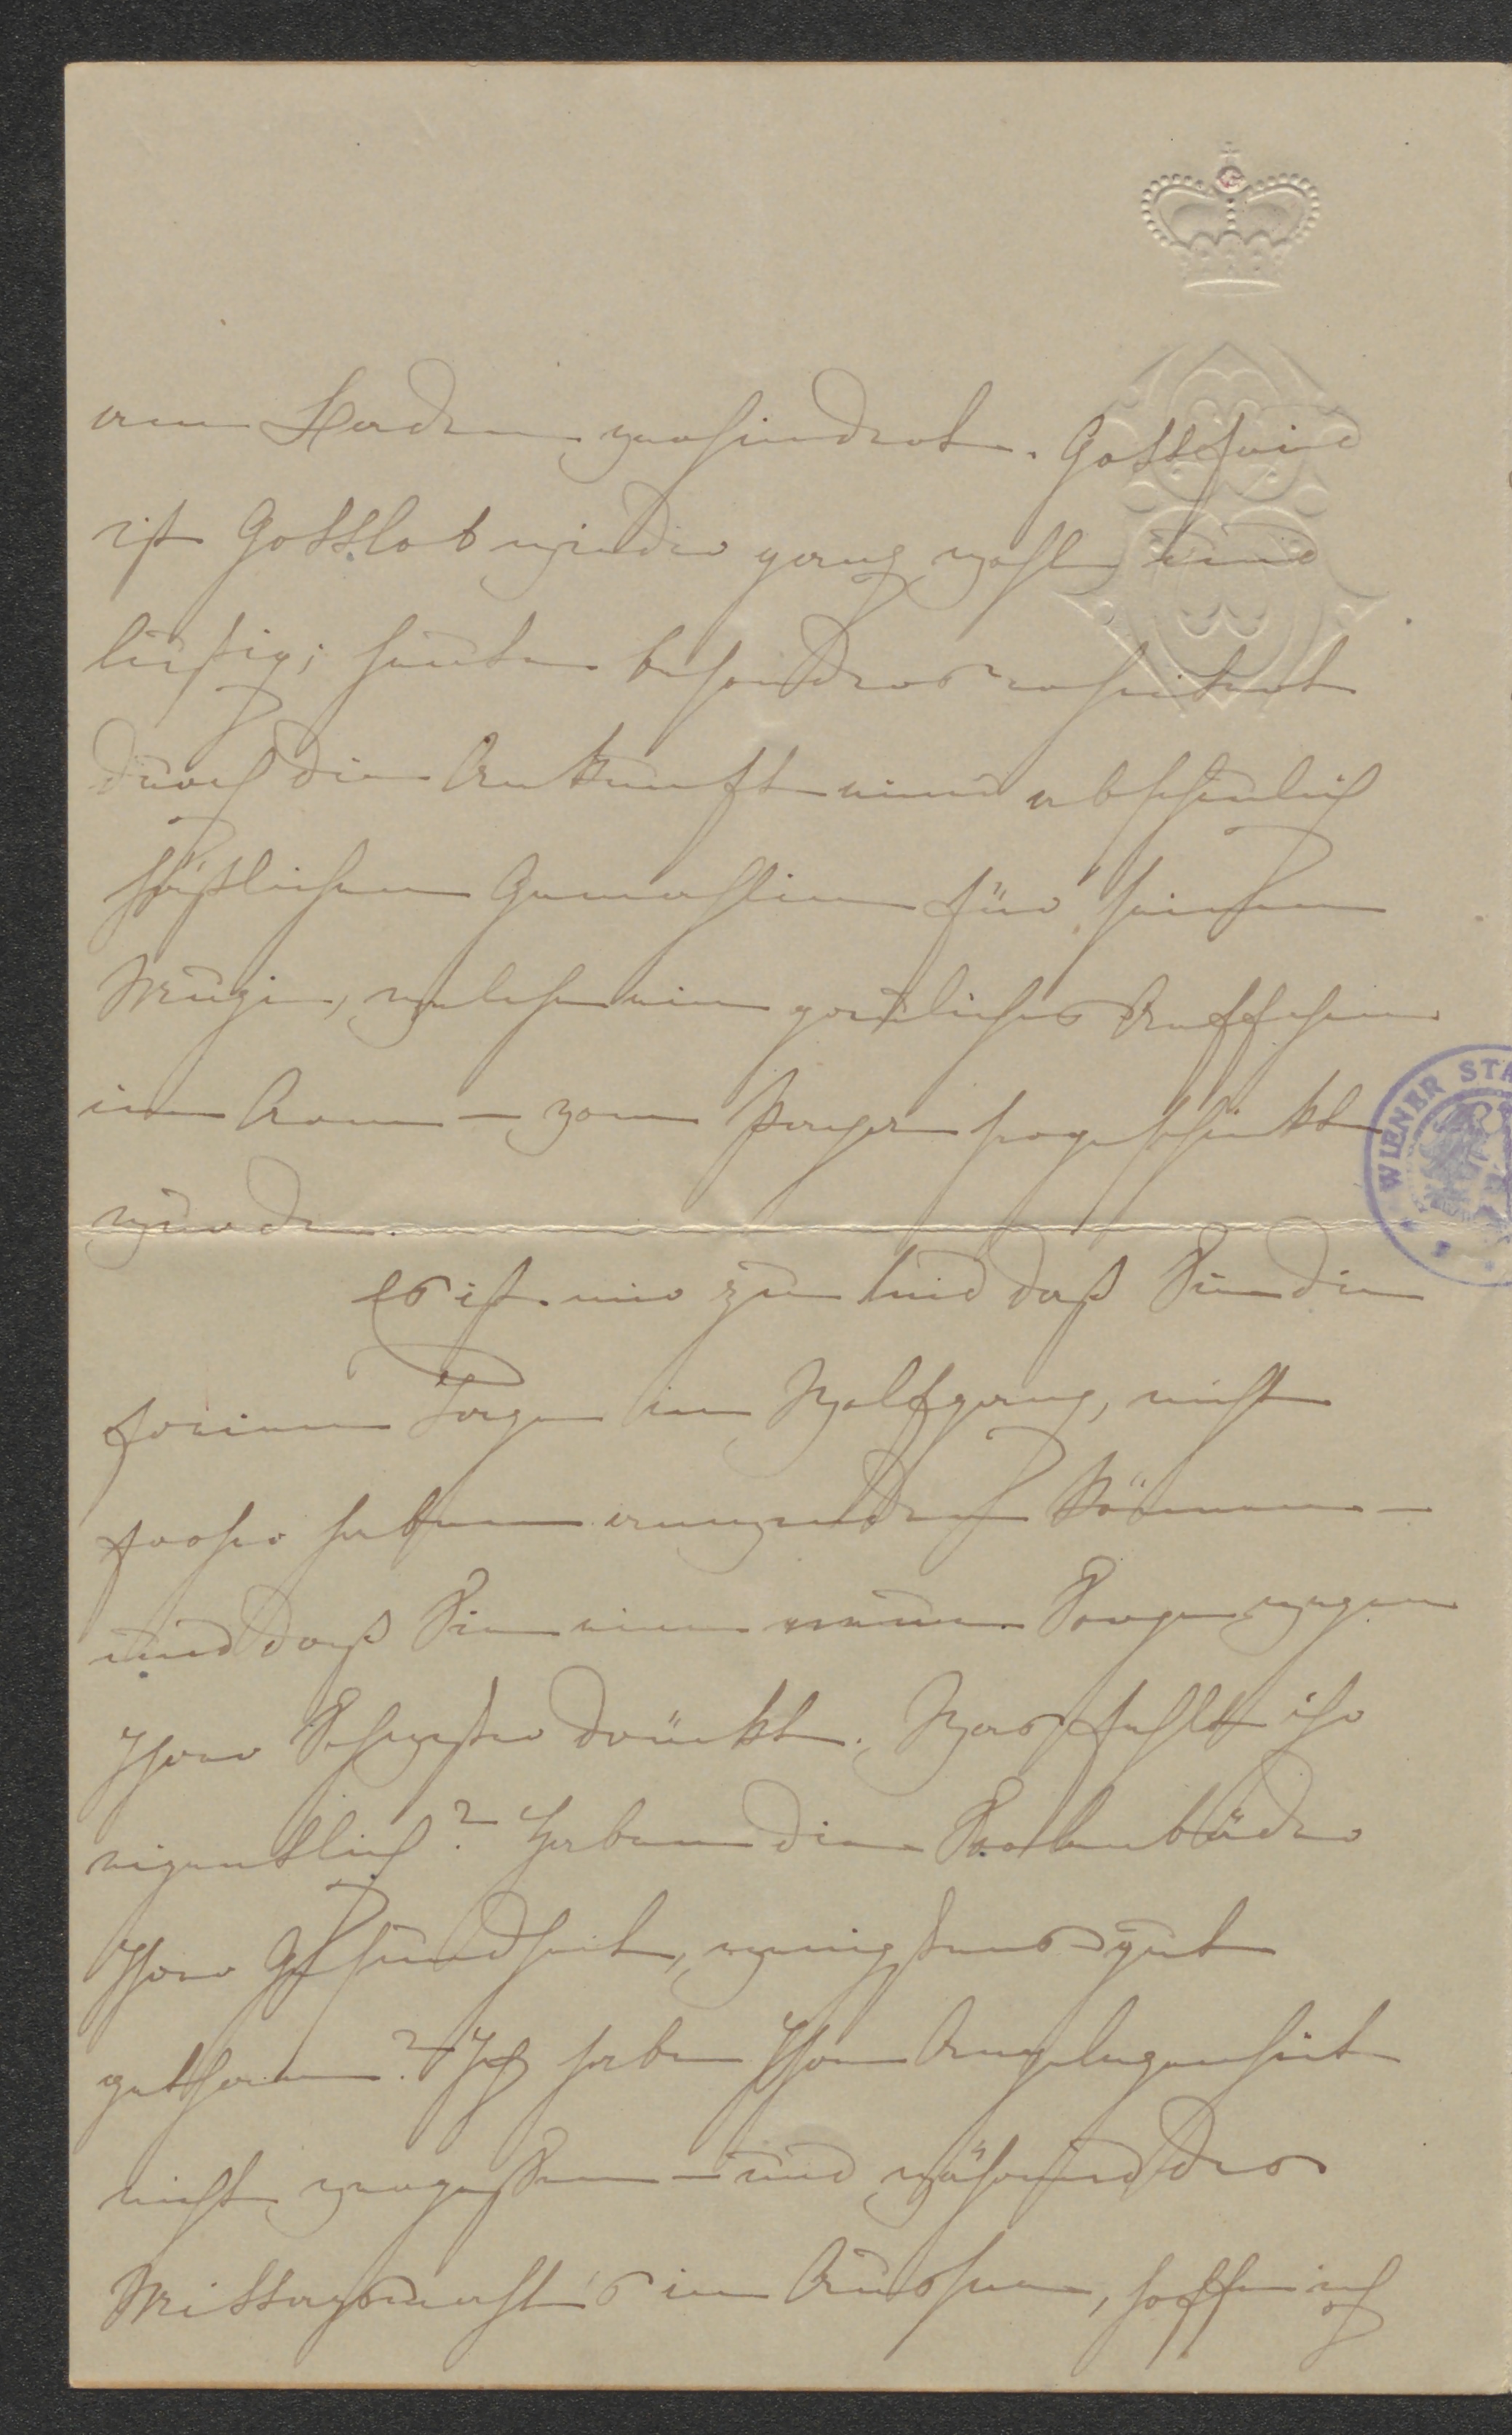 am Baden verhindert. Gottfried
ist Gottlob wieder ganz wohl und
lustig; heute besonders erheitert
durch die Ankunft einer abscheulich
häßlichen Gemahlin für seinen
Muzi, welche ein garstiges Äffchen
im Arm – vom hergeschickt
wurde.
Es ist mir zu leid daß Sie die
freien Tage in Wolfgang, nicht
froher haben anwenden können –
und daß Sie eine neue Sorge wegen
Ihrer Schwester drückt. Was fehlt ihr
eigentlich? Haben die Soolenbäder
Ihrer Gesundheit, wenigstens gut
gethan? Ich habe Ihre Angelegenheit
nicht vergessen – und während des
Mittagsmahl's in Aussee, hoffe ich
WIENER STA